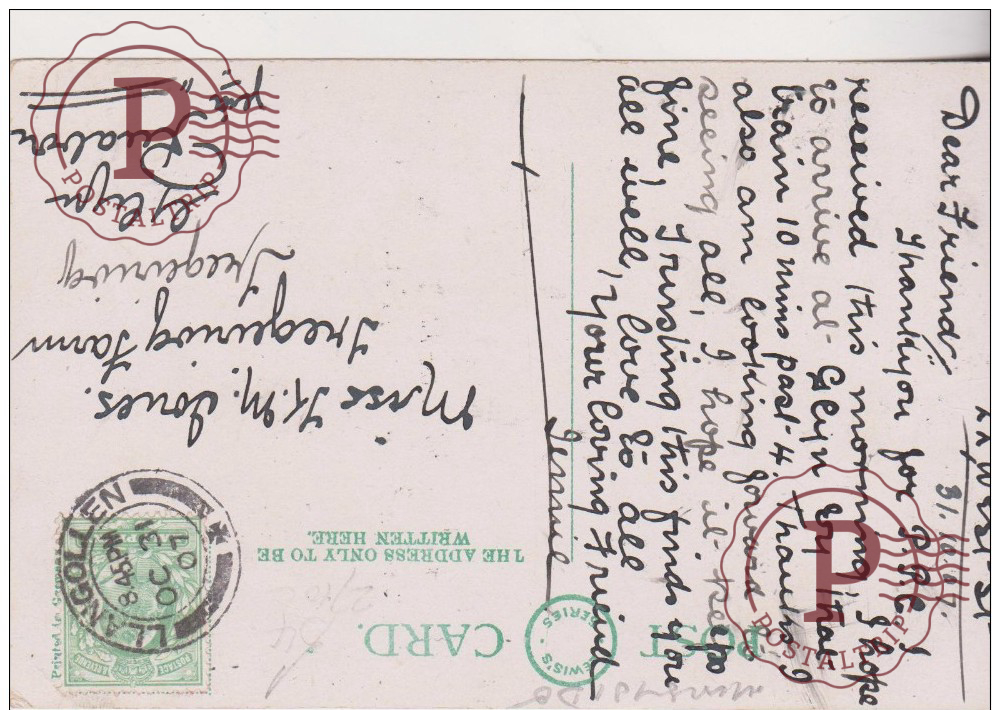 POST CARD.
LEWIS'S SERIES.
THE ADDRESS ONLY TO BE
WRITTEN HERE.
31.10.07.
Dear Friend,
Thankyou for P.P.C. I
received this morning, I hope
to arrive at Glyn by tram
train 10 mins past 4 Thanks I
also am looking foward
seeing all, I hope it keeps
fine, Trusting this finds you
all well, love to all
Your loving Friend
Jennie
Miss K. M. Jones.
Tregeiriog Farm
Tregeiriog
Glyn
Ruabon
LLANGOLLEN
8 45PM
OC 31
07
POSTAGE
P
POSTALTRIP
P
POSTALTRIP